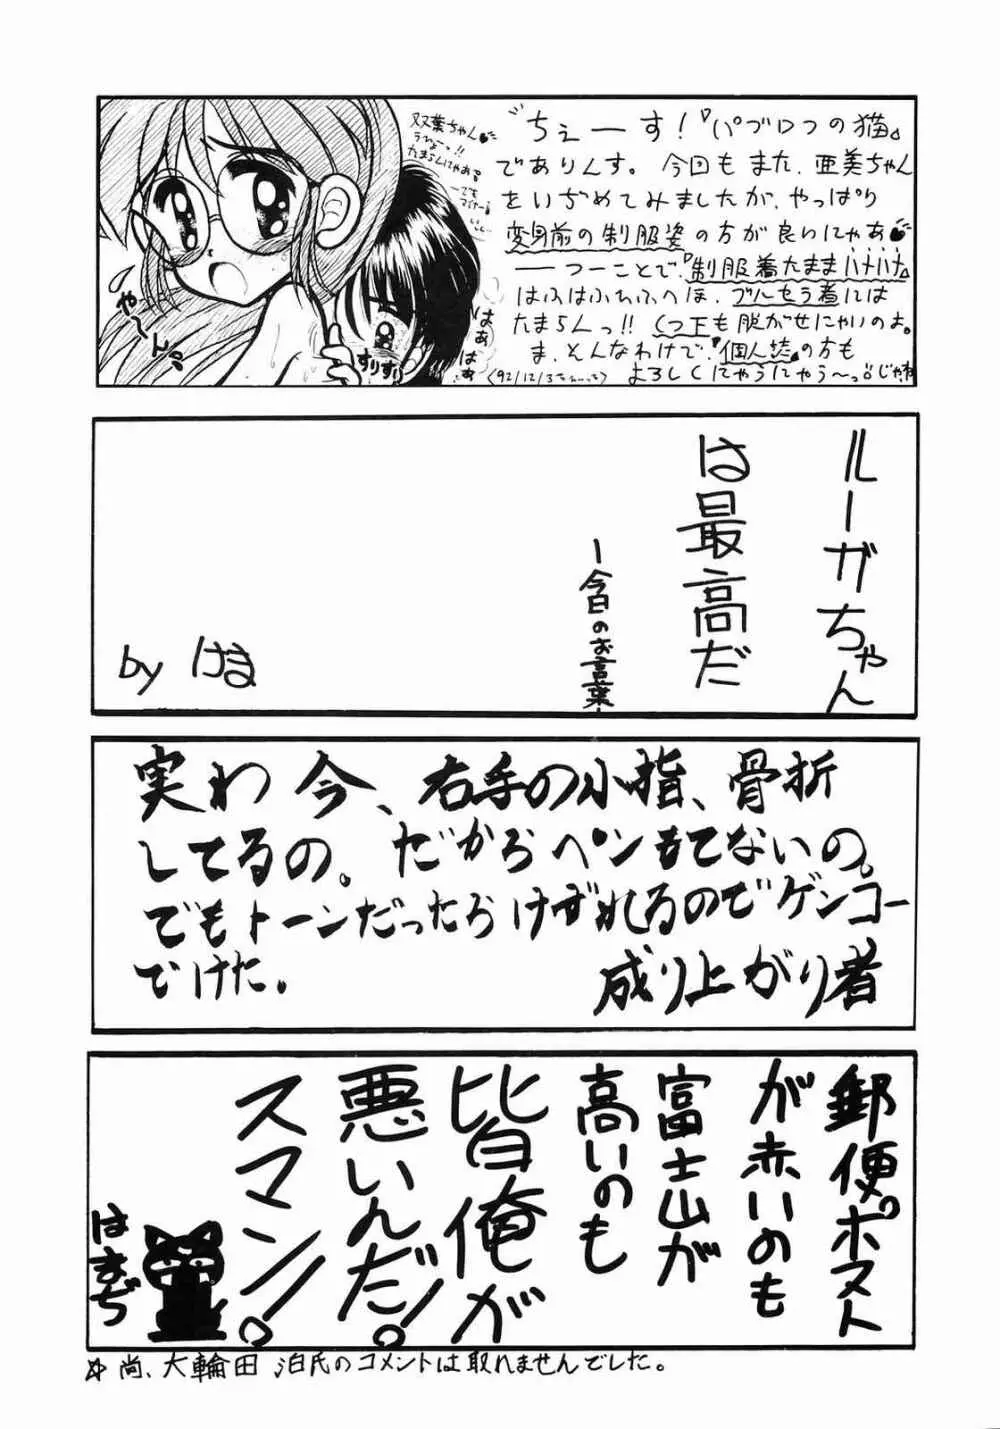 〝ちぇーす！『パブロフの猫』
でありんす。今回もまた、亜美ちゃん
をいぢめてみましたが、やっぱり
変身前の制服姿の方が良いにゃあ
――つーことで、『制服着たままハナハナ』
はふはふれふへほ、ブルセラ着には
たまらんっ!!くつ下も脱がせにゃいのよ。
ま、そんなわけで、『個人誌』の方も
よろしくにゃうにゃう～っ!!じゃね
双葉ちゃん
たまらんにゃお
やーん
すりすり
はぁはぁ
ルーガちゃん
は最高だ
ー今日のお言葉ー
by けま
実わ今、右手の小指、骨折
してるの。だからペンもてないの。
でもトーンだったらけずれるのでゲンコー
でけた。
成り上がり者
郵便ポスト
が赤いのも
富士山が
高いのも
皆俺が
悪いんだ!
スマン!
はまぢ
☆尚、大輪田 泊氏のコメントは取れませんでした。